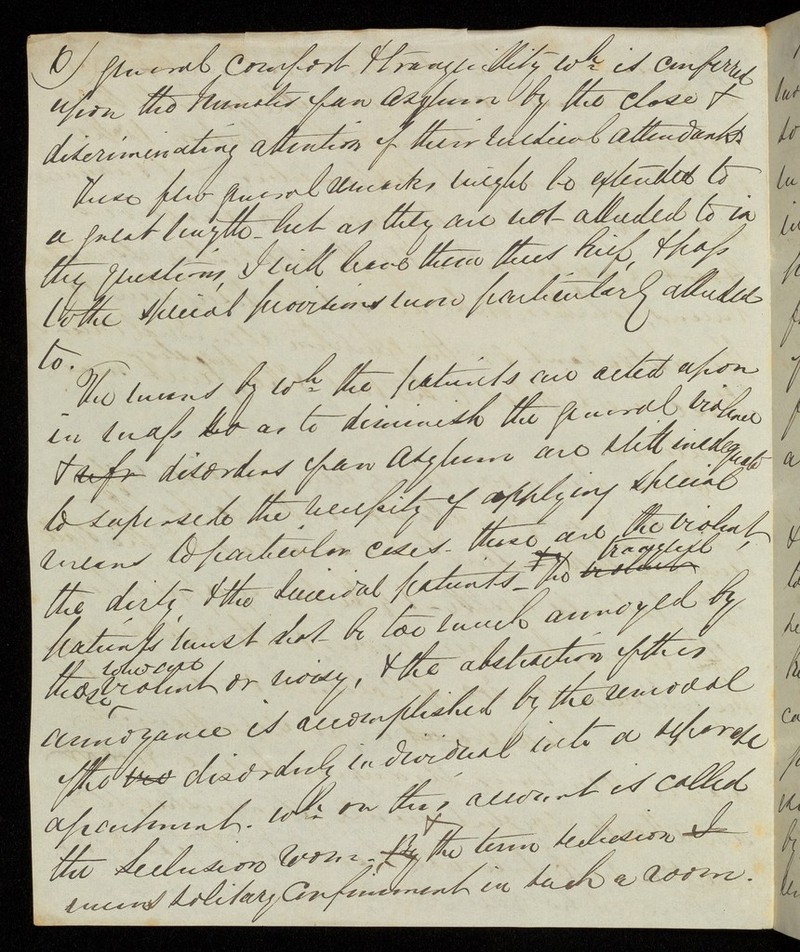 6) general comfort & tranquillity wh is conferred
upon the inmates of an Asylum by the close &
discriminating attention of their medical attendants
These few general remarks might be extended to
a great length - but as they are not alluded to in
thy questions, I will leave them thus brief, & pass
to the special provisions more particularly alluded
to.
The means by wh the patients are acted upon
in mass so as to diminish the general violence
& disorders of an Asylum are still inadequate
to supersede the necessity of applying special
means to particular cases - these are the violent,
the dirty, & the suicidal patients - & the violent tranquil
patients must not be too much annoyed by
those who are violent or noisy, & the abstraction of this
annoyance is accomplished by the removal
of the disorderly individual into a separate
apartment. wh on this account is called
the Seclusion room - & the term seclusion I
means solitary confinement in such a room.